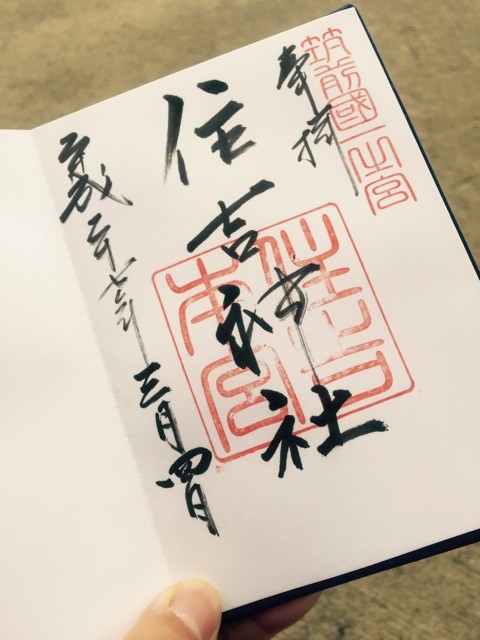 筑前國一之宮
奉拝
住吉神社
住吉本宮
平成二十七年三月四日